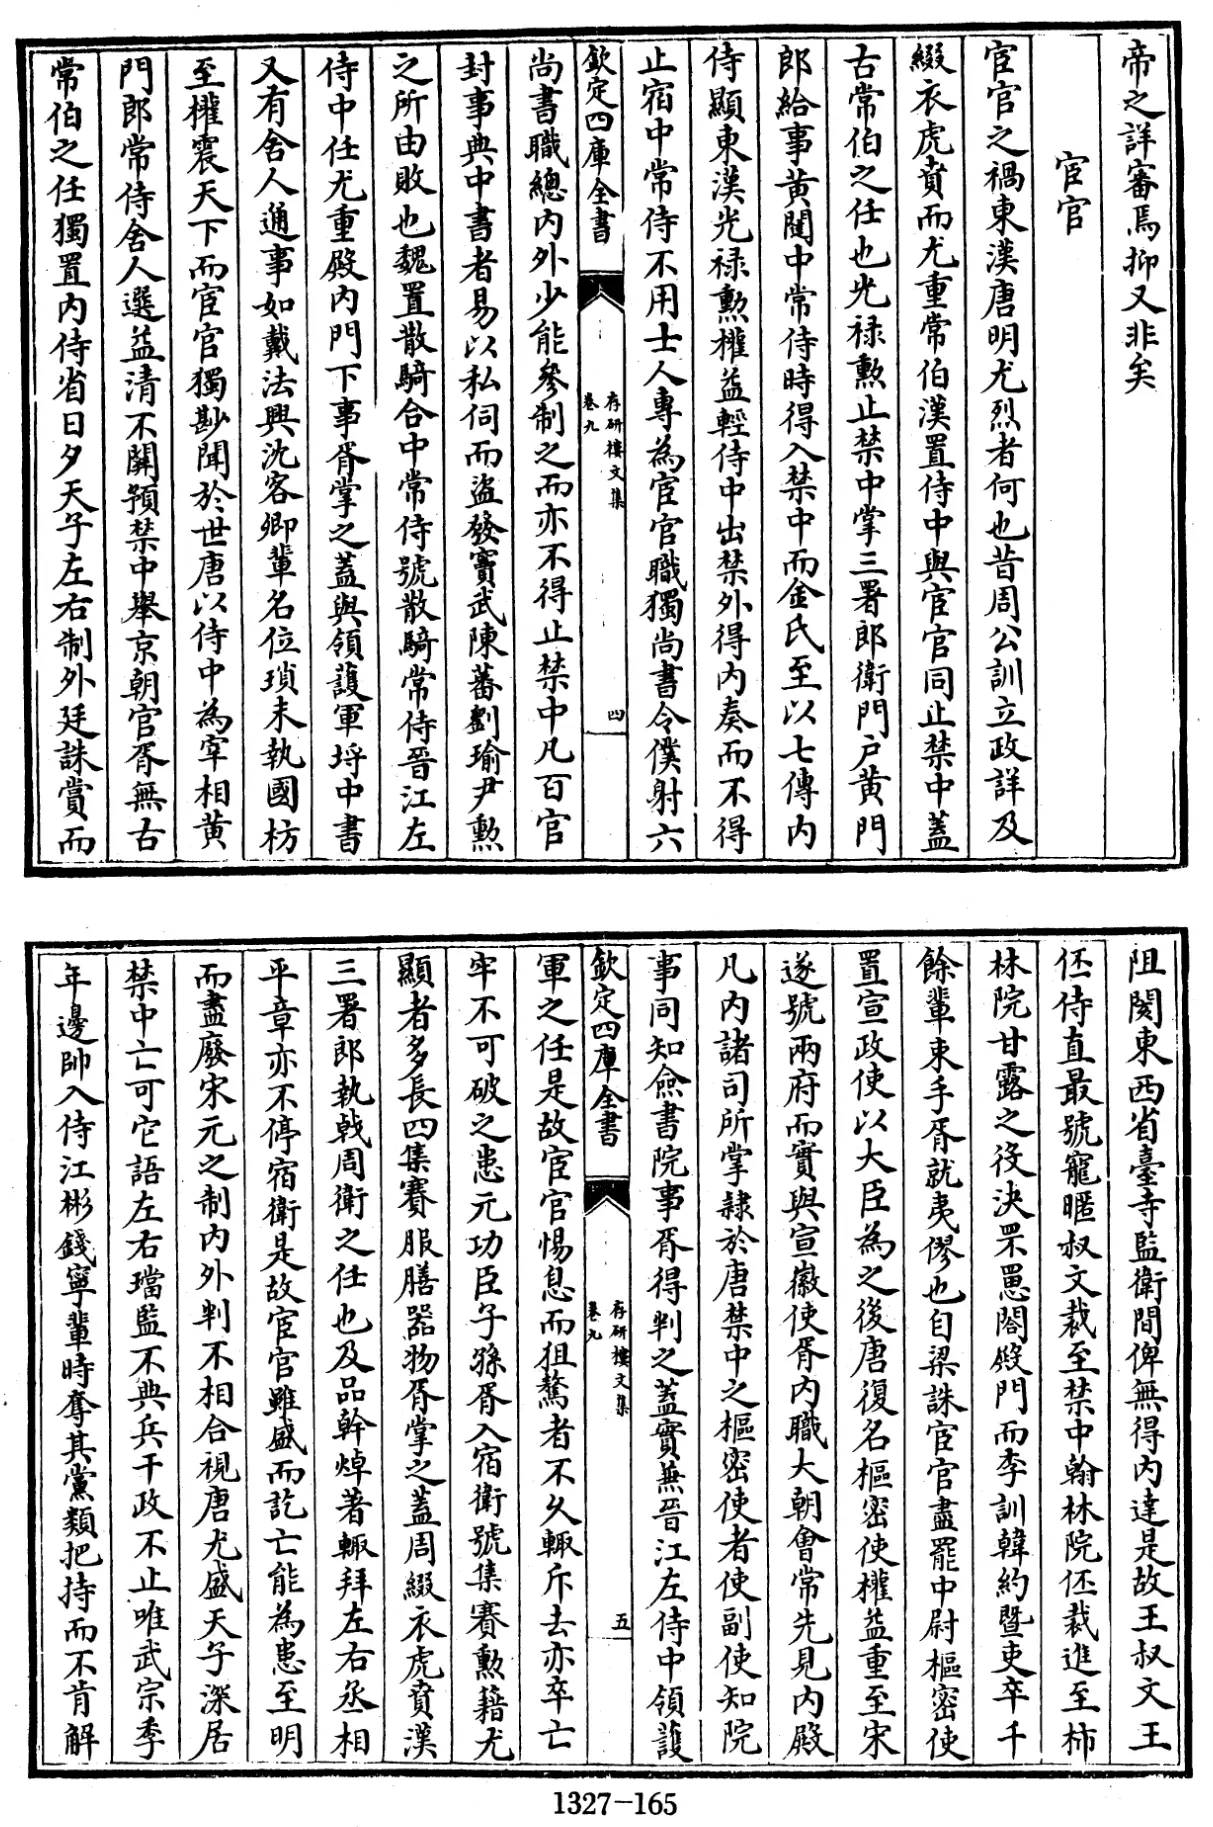 帝之詳審焉抑又非矣
宦官
宦官之禍東漢唐明尤烈者何也昔周公訓立政詳及
綴衣虎賁而尤重常伯漢置侍中與宦官同止禁中蓋
古常伯之任也光禄勲止禁中掌三署郎衛門户黄門
郎給事黄闥中常侍時得入禁中而金氏至以七傳内
侍顯東漢光禄勲權益輕侍中出禁外得内奏而不得
止宿中常侍不用士人專為宦官職獨尚書令僕射六
欽定四庫全書
存研樓文集
卷九
四
尚書職總内外少能參制之而亦不得止禁中凡百官
封事典中書者易以私伺而盗發竇武陳蕃劉瑜尹勲
之所由敗也魏置散騎合中常侍號散騎常侍晉江左
侍中任尤重殿内門下事胥掌之蓋與領護軍埒中書
又有舍人通事如戴法興沈客卿輩名位瑣末執國枋
至權震天下而宦官獨尠聞於世唐以侍中為宰相黄
門郎常侍舍人選益清不關預禁中舉京朝官胥無古
常伯之任獨置内侍省日夕天子左右制外廷誅賞而
阻閡東西省臺寺監衛間俾無得内達是故王叔文王
伾侍直最號寵暱叔文裁至禁中翰林院伾裁進至柿
林院甘露之役決罘罳閤殿門而李訓韓約暨吏卒千
餘輩束手胥就夷僇也自梁誅宦官盡罷中尉樞密使
置宣政使以大臣為之後唐復名樞密使權益重至宋
遂號兩府而實與宣徽使胥内職大朝會常先見内殿
凡内諸司所掌隸於唐禁中之樞密使者使副使知院
事同知僉書院事胥得判之蓋實兼晉江左侍中領護
欽定四庫全書
存研樓文集
卷九
五
軍之任是故宦官惕息而狙驁者不久輙斥去亦卒亡
牢不可破之患元功臣子孫胥入宿衛號集賽勲籍尤
顯者多長四集賽服膳器物胥掌之蓋周綴衣虎賁漢
三署郎執戟周衛之任也及品幹焯著輙拜左右丞相
平章亦不停宿衛是故宦官雖盛而訖亡能為患至明
而盡廢宋元之制内外判不相合視唐尤盛天子深居
禁中亡可它語左右璫監不典兵干政不止唯武宗季
年邊帥入侍江彬錢寧輩時奪其黨類把持而不肯解
1327-165